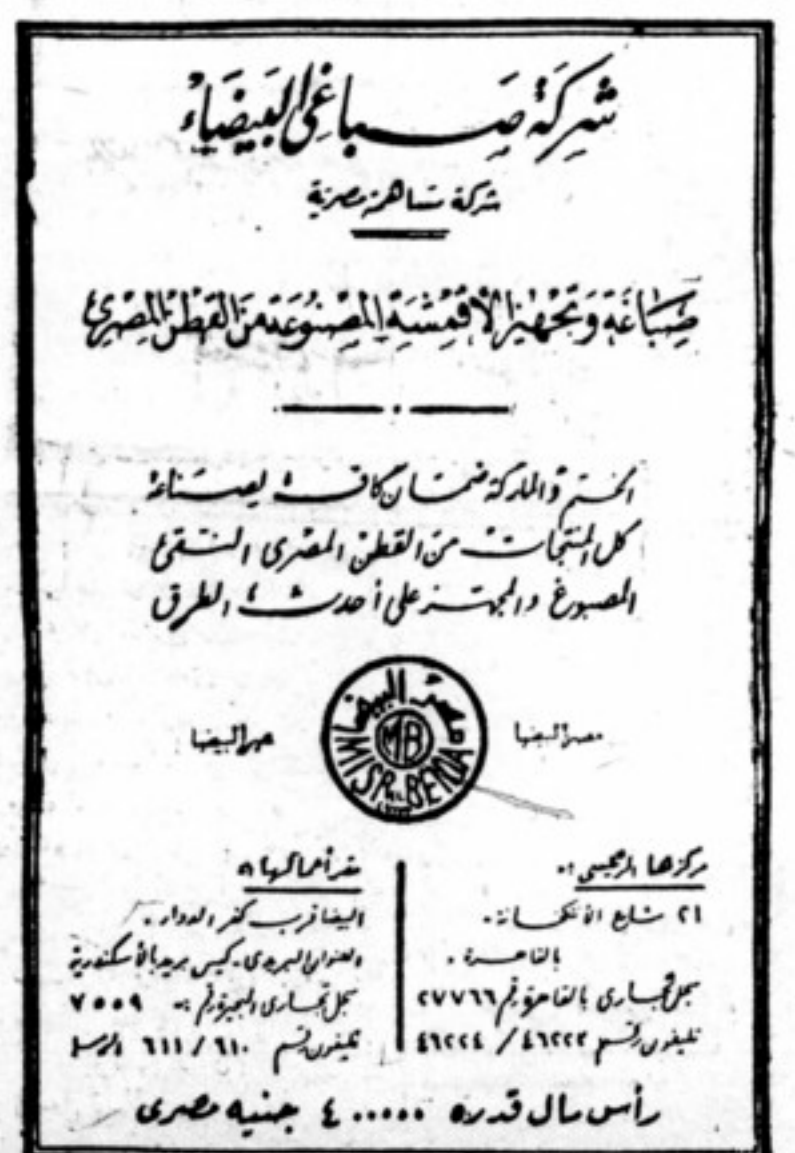 شركة صباغى البيضاء
شركة مساهمة مصرية
صباغة وتجهيز الأقمشة المصنوعة من القطن المصرى
الختم والماركة ضمان كاف
كل المنتجات من القطن المصرى النقى
المصبوغ والمجهز على أحدث الطرق
مصر البيضا
مصر البيضا
MB
MISR BEIDA
مصر البيضا
مركزها الرئيسى :
٢١ شارع الأنتكخانة
بالقاهرة
سجل تجارى بالقاهرة رقم ٢٧٧٦٦
تليفون رقم ٤٦٢٢٣ / ٤٦٢٢٤
مقر أعمالها :
البيضا قرب كفر الدوار
العنوان البريدى . كيس بريد بالأسكندرية
سجل تجارى البحيرة رقم ٧٥٥٩
تليفون رقم ٦١٠ / ٦١١ الرمل
رأس مال قدره ٤٠٠٠٠٠ جنيه مصرى